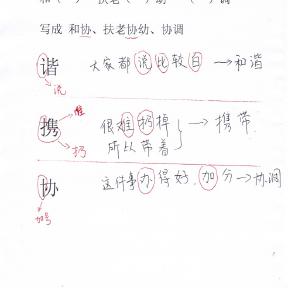 写成 和协、扶老协幼、协调
谐 大家都说比较白 → 和谐
说
难
携 很难扔掉 → 携带
扔 所以带着
协 这件事办得好,加分 → 协调
加号